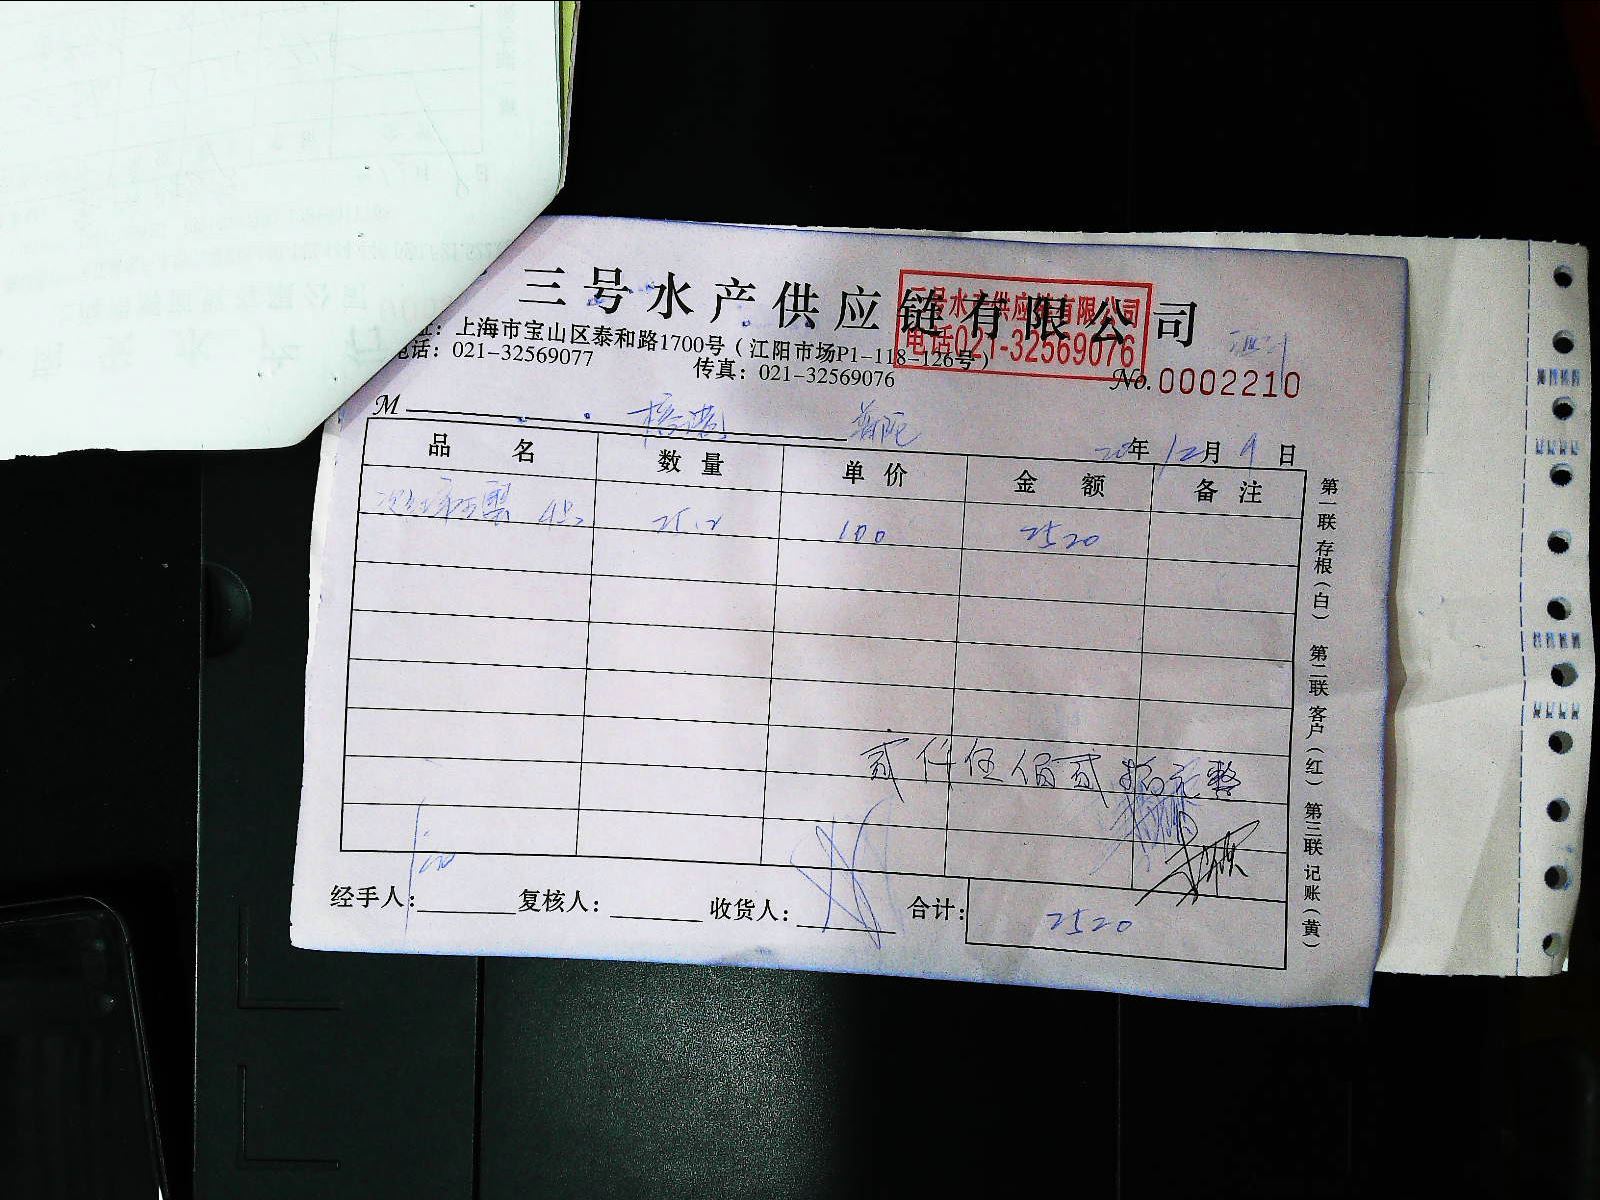 三号水产供应链有限公司
三号水产供应链有限公司
电话021-32569076
址：上海市宝山区泰和路1700号（江阳市场P1-118-126号）
电话：021-32569077 传真：021-32569076
No.0002210
M 普陀
20年12月9日
品名 数量 单价 金额 备注
25.2 100 2520
贰仟伍佰贰拾元整
经手人： 复核人： 收货人： 合计： 2520
第一联 存根（白） 第二联 客户（红） 第三联 记账（黄）